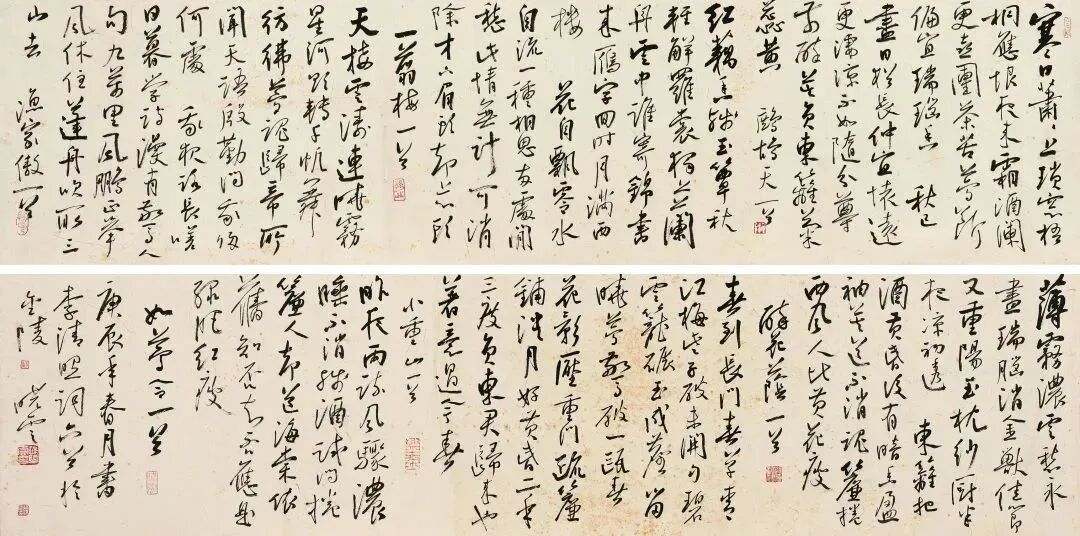 寒日蕭蕭上瑣窗梧
桐應恨夜来霜酒闌
更喜團茶苦夢斷
偏宜瑞腦香 秋已
盡日猶長仲宣懷遠
更凄涼不如隨分尊
前醉莫負東籬菊
蕊黄 鷓鴣天一首
红藕香殘玉簟秋
輕解羅裳獨上蘭
舟雲中誰寄錦書
来雁字回時月滿西
樓 花自飄零水
自流一種相思兩處閒
愁此情無計可消
除才下眉頭却上心頭
一剪梅一首
天接雲濤連曉霧
星河欲轉千帆舞
彷彿夢魂歸帝所
聞天語殷勤問我歸
何處 我報路長嗟
日暮學詩漫有驚人
句九萬里風鵬正舉
風休住蓬舟吹取三
山去 漁家傲一首
薄霧濃雲愁永
晝瑞腦消金獸佳節
又重陽玉枕紗厨半
夜凉初透 東籬把
酒黄昏後有暗香盈
袖莫道不消魂簾捲
西風人比黄花瘦
醉花陰一首
春到長門春草青
江梅些子破未開勻碧
雲籠碾玉成塵留
曉夢驚破一甌春
花影壓重門疏簾
鋪淡月好黄昏二年
三度負東君歸来也
著意過今春
小重山一首
昨夜雨疏風驟濃
睡不消殘酒試問捲
簾人却道海棠依
舊知否知否應是
緑肥红瘦
如夢令一首
庚辰年春月書
李清照詞六首於
金陵 曉雲